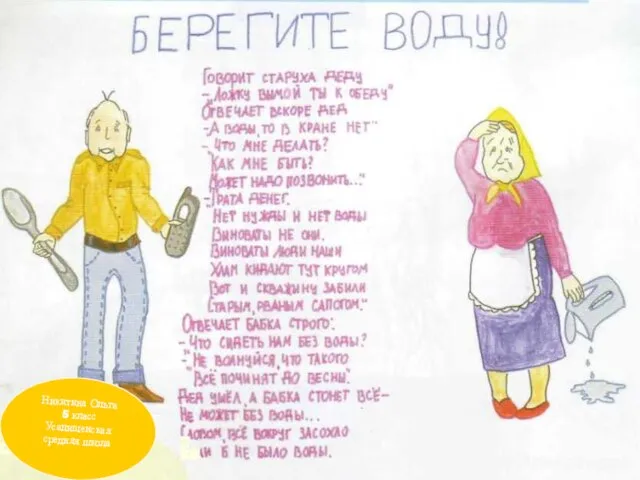 БЕРЕГИТЕ ВОДУ!
Говорит старуха деду
-„Ложку вымой ты к обеду"
Отвечает вскоре дед
-А воды, то в кране нет"
-„Что мне делать?
Как мне быть?
Может надо позвонить..."
-Трата денег.
Нет нужды и нет воды
Виноваты не они.
Виноваты люди наши
Хлам кидают тут кругом
Вот и скважину забили
Старым, рваным сапогом."
Отвечает бабка строго:
-Что сидеть нам без воды?
-"Не волнуйся, что такого
"Всё починят до весны".
Дед ушёл, а бабка стонет всё-
Не может без воды...
Словом, всё вокруг засохло
б не было воды.
Никитина Ольга
5 класс
средняя школа